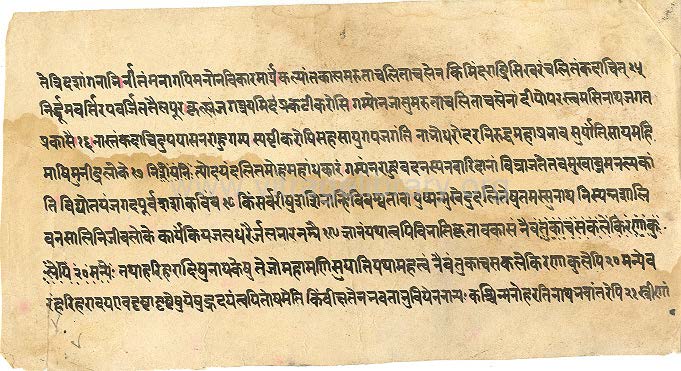 ते त्रिदशांगनाभिर्नीतं मनागपि मनो न विकारमार्गं कल्पांतकालमरुता चलिताचलेन किं मंदराद्रिशिखरं चलितं कदाचित् १५
निर्द्धूमवर्त्तिरपवर्जिततैलपूरः कृत्स्नं जगत्रयमिदं प्रकटीकरोषि गम्यो न जातु मरुतां चलिताचलानां दीपोपरस्त्वमसि नाथ जगत
प्रकासः १६ नास्तं कदाचिदुपयासि न राहुगम्यः स्पष्टीकरोषि सहसा युगपज्जगंति नांभोधरोदरनिरुद्धमहाप्रभावः सूर्यातिशायिमहि
मासि मुनींद्र लोके १७ नित्योदयं दलितमोहमहांधकारं गम्यं न राहुवदनस्य न वारिदानां विभ्राजते तव मुखाब्जमनल्पकां
ति विद्योतयज्जगदपूर्वशशांकबिंबं १८ किं सर्वरीषु शशिनाह्नि विवस्वता वा युष्मन्मुखेंदुदलितेषु तमस्सु नाथ निष्पन्नशालि
वनसालिनि जीवलोके कार्यं कियज्जलधरैर्जलभारनम्रैः १९ ज्ञानं यथा त्वयि विभाति कृतावकासं नैवं तु काचसकले किरणाकु
लेपि २० मन्ये तथा हरिहरादिषु नायकेषु तेजो महामणिषु याति यथा महत्वं नैवं तु काचसकले किरणाकुलेपि २० मन्ये व
रं हरिहरादय एव दृष्टा दृष्टेषु येषु हृदयं त्वयि तोषमेति किं वीक्षितेन भवता भुवि येन नान्यः कश्चिन्मनो हरति नाथ भवांतरेपि २१ स्त्रीणां